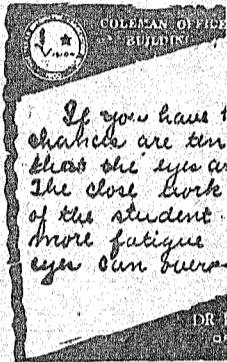 COLEMAN OFFICE
BUILDING
Vision
If you have
chances are ten
that the eyes ar
The close work
of the student
more fatigue
eyes can over
DR